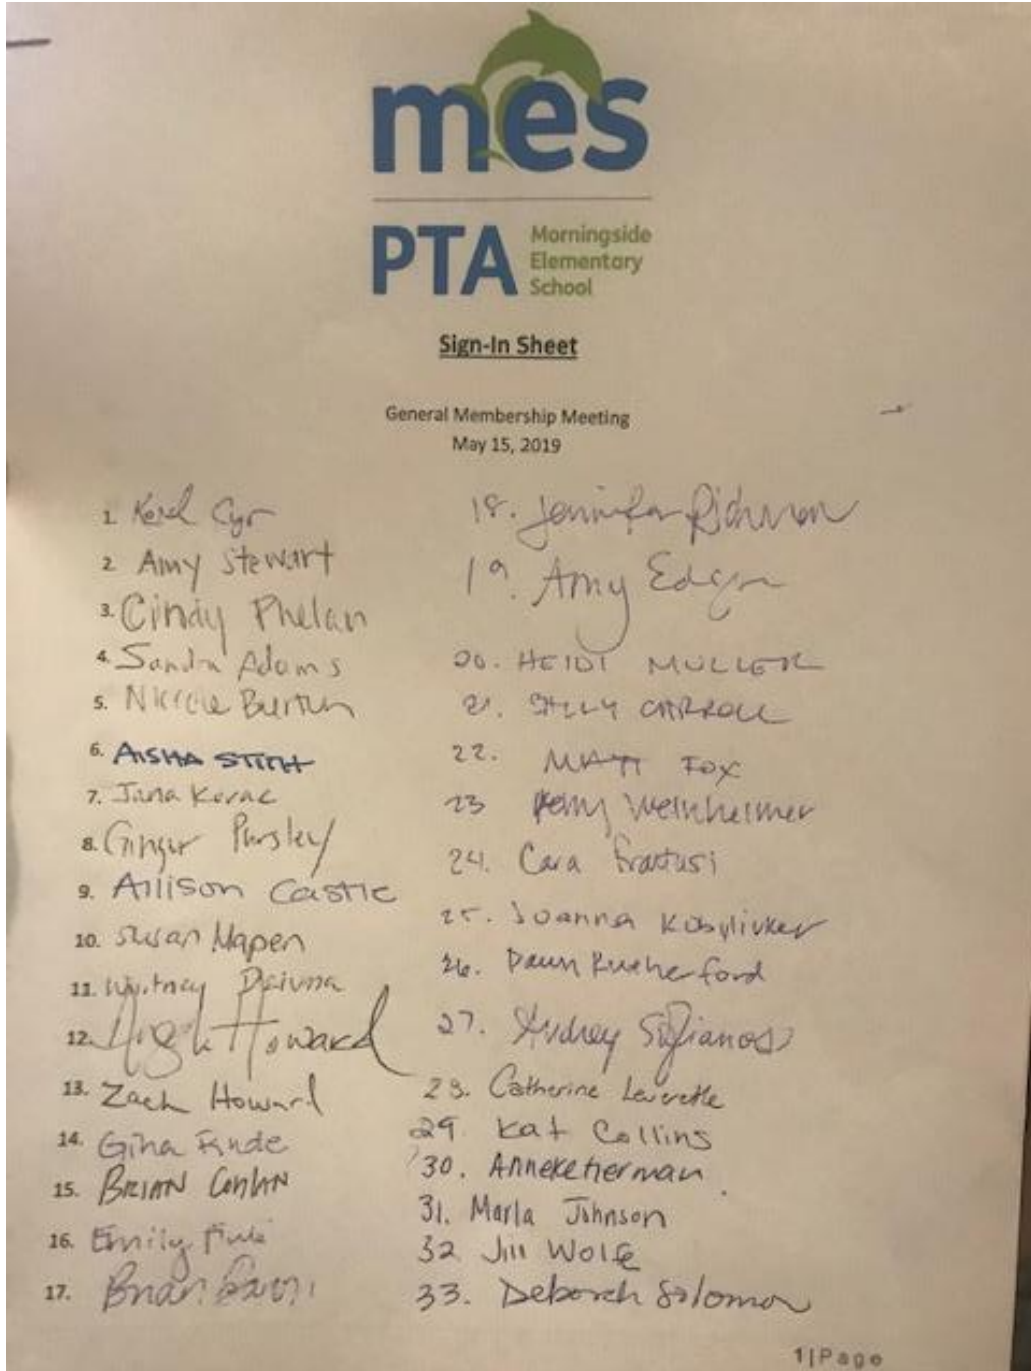 mes
PTA Morningside
Elementary
School
Sign-In Sheet
General Membership Meeting
May 15, 2019
1. Cyr
2. Amy Stewart
3. Cindy Phelan
4. Sandra Adams
5. Burton
6. AISHA STITH
7. Jana Kovac
8. Ginger Pursley
9. Allison Castle
10. Susan Mapen
11. Whitney
12. Howard
13. Zach Howard
14. Gina
15. BRIAN CONLAN
16. Emily
17. Brian
18. Jennifer Richman
19. Amy Edgar
20. HEIDI MULLER
21. SALLY CARROLL
22. MATT FOX
23 Weinheimer
24. Cara Frattasi
25. Joanna Kobylivker
26. Dawn Rutherford
27. Audrey Sofianos
28. Catherine Leverette
29. Kat Collins
30. Anneke Herman
31. Marla Johnson
32 Jill Wolfe
33. Deborah Solomon
1|Page